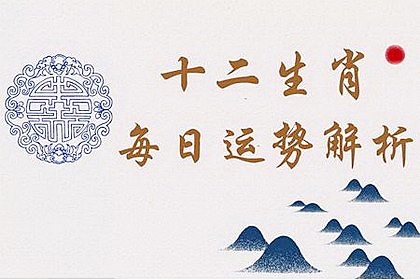 十二生肖
每日运势解析